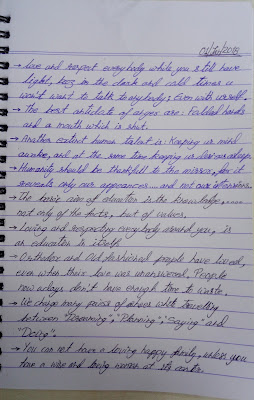 → Love and respect everybody while you still have
light, coz in the dark and cold times u
won't want to talk to anybody; Even with yourself.
→ The best antidote of anger are: Folded hands
and a mouth which is shut.
→ Another extinct human talent is: Keeping us mind
awake, and at the same time keeping us
→ Humanity should be thankfull to the mirror, for it
reveals only our appearances... and not our
→ The basic aim of education is the knowledge,.....
not only of the facts, but of values.
→ Loving and respecting everybody around you, is
an education in itself.
→ Orthodox and Old fashioned people have loved,
even when their love was unanswered. People
now adays don't have enough time to waste.
→ We change many pairs of shoes while travelling
between "Dreaming"; "Planning"; "Saying" and
"Doing".
→ You can not have a loving happy family, unless you
have a wise and loving woman at its centre.